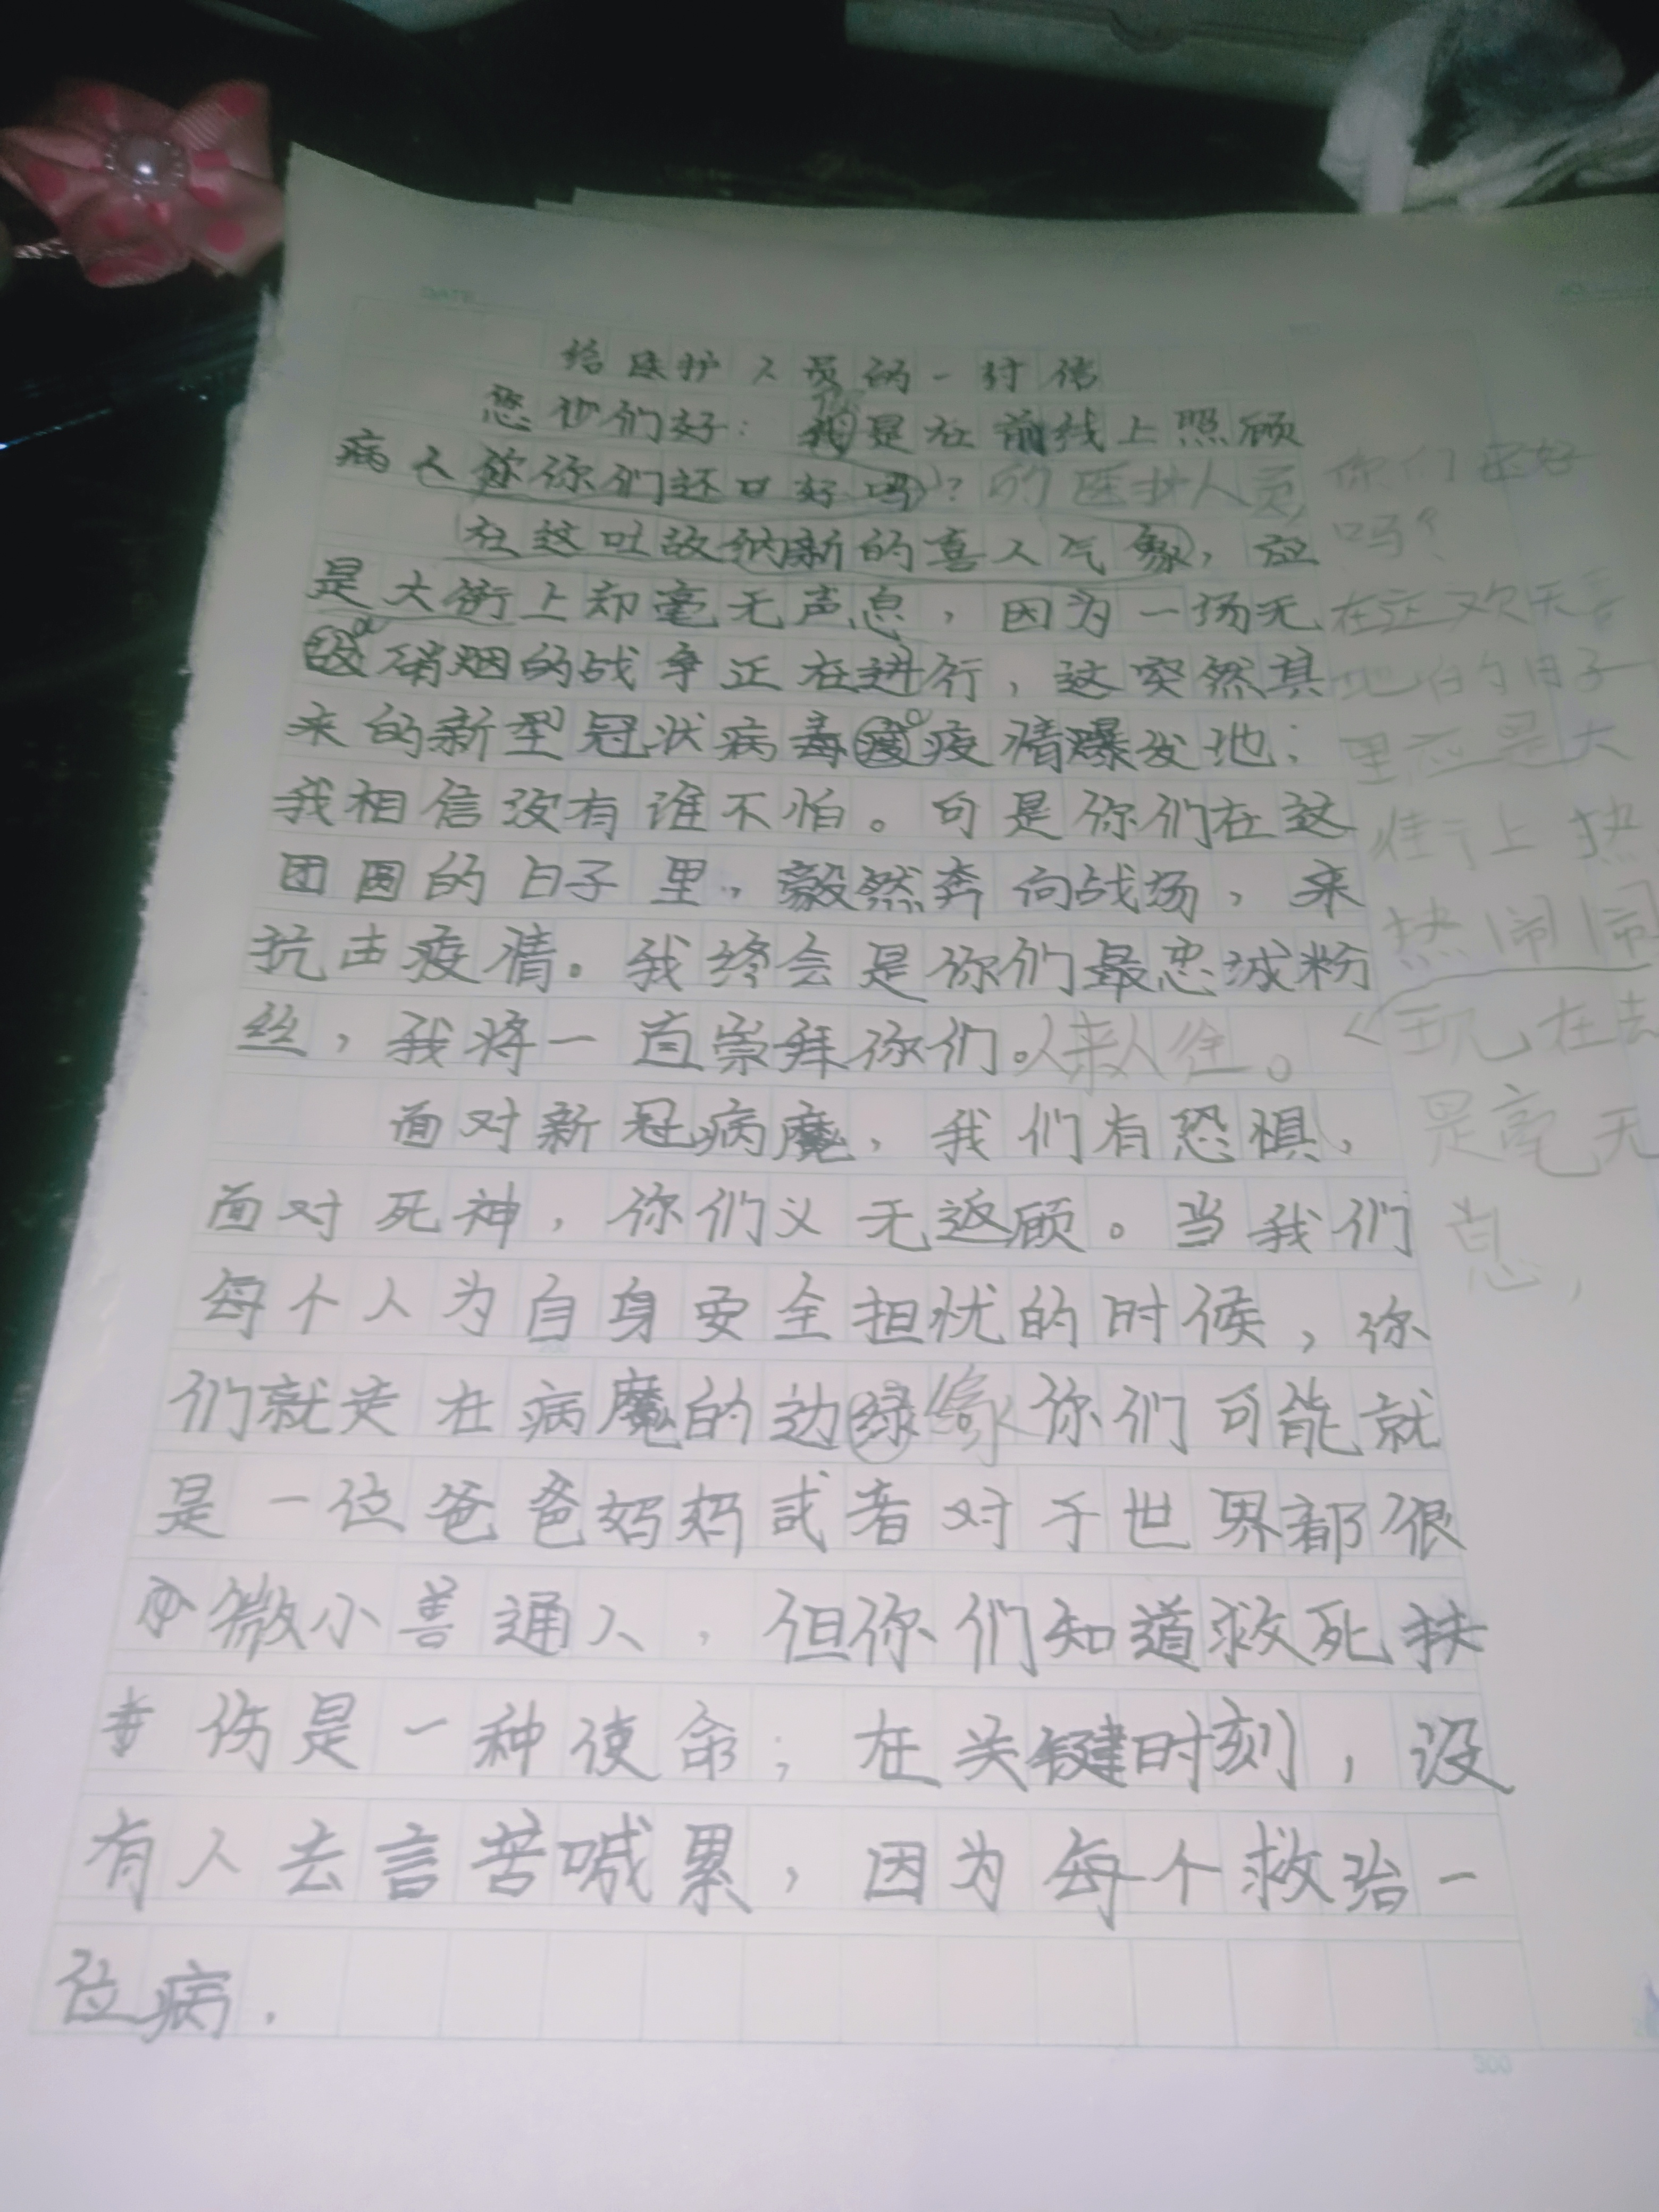 给医护人员的一封信
您他们好：我是在前线上照顾
病人你你们还口好吗？的医护人员 你们还好
吗？
在这吐故纳新的喜人气象，应
是大街上却毫无声息，因为一场无
硝烟的战争正在进行，这突然其
来的新型冠状病毒疫情爆发地；
我相信没有谁不怕。可是你们在这
团圆的日子里，毅然奔向战场，来
抗击疫情。我终会是你们最忠诚粉
丝，我将一直崇拜你们。人来人往。
在这欢天喜
地的日子
里应是大
街上热
热闹闹
现在却
是毫无
息，
面对新冠病魔，我们有恐惧，
面对死神，你们义无返顾。当我们
每个人为自身安全担忧的时候，你
们就走在病魔的边缘你们可能就
是一位爸爸妈妈或者对于世界都很
微小普通人，但你们知道救死扶
伤是一种使命；在关键时刻，没
有人去言苦喊累，因为每个救治一
位病．
300